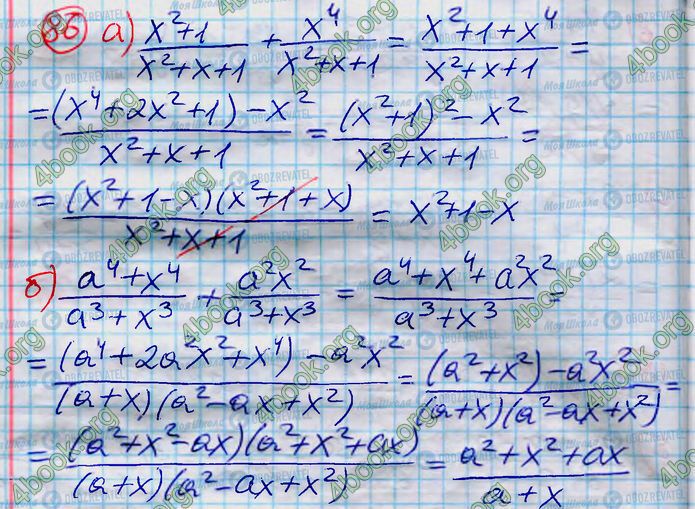 86 а) (x²+1)/(x²+x+1) + x⁴/(x²+x+1) = (x²+1+x⁴)/(x²+x+1) =
= ((x⁴+2x²+1)-x²)/(x²+x+1) = ((x²+1)²-x²)/(x²+x+1) =
= (x²+1-x)(x²+1+x)/(x²+x+1) = x²+1-x
б) (a⁴+x⁴)/(a³+x³) + a²x²/(a³+x³) = (a⁴+x⁴+a²x²)/(a³+x³) =
= ((a⁴+2a²x²+x⁴)-a²x²)/((a+x)(a²-ax+x²)) = ((a²+x²)-a²x²)/((a+x)(a²-ax+x²)) =
= (a²+x²-ax)(a²+x²+ax)/((a+x)(a²-ax+x²)) = (a²+x²+ax)/(a+x)
4book.org
Моя Школа
OBOZREVATEL